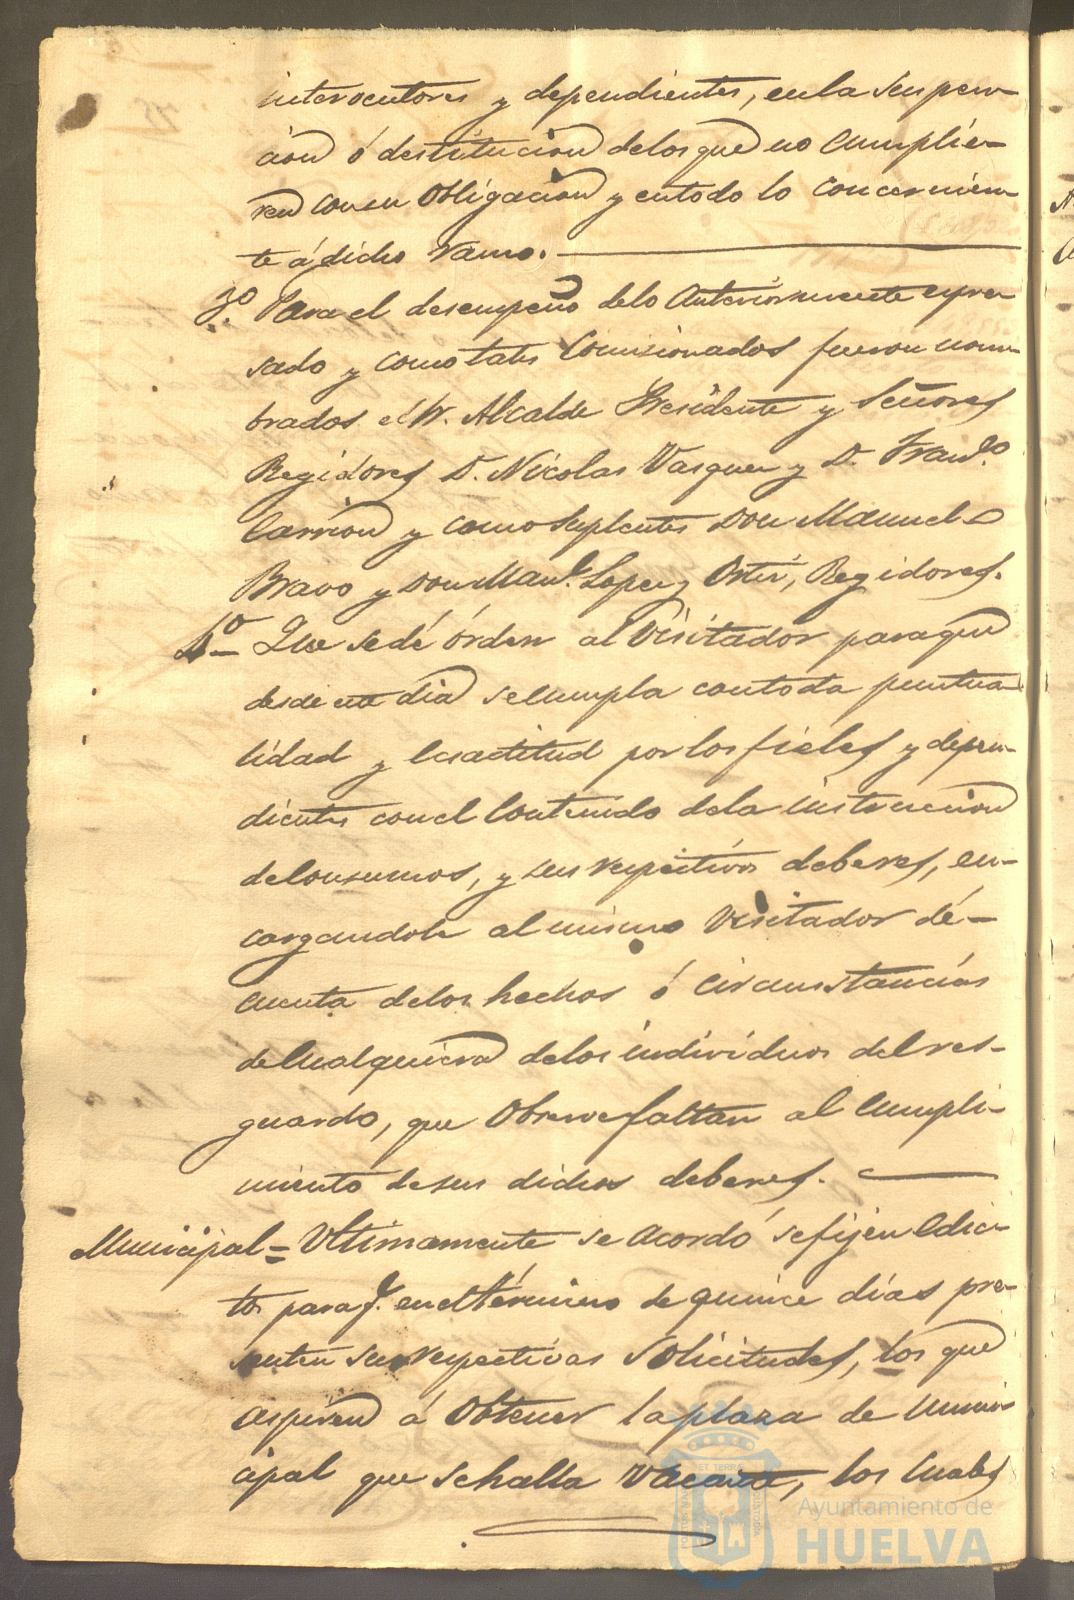 interventores y dependientes, en la suspen-
cion ó destitucion delos que no Cumplie-
ren con su Obligacion y en todo lo concernien-
te á dicho ramo.
3º. Para el desempeño delo Anteriormente expre-
sado y como tales Comisionados fueron nom-
brados el Sr. Alcalde Presidente y Señores
Regidores D. Nicolas Vasquez y D. Franco.
Carrion y como suplentes Don Manuel
Bravo y Don Manl. Lopez y Ortiz, Regidores.
4º Que se dé órden al Visitador para que
desde este dia se cumpla con toda puntua
lidad y Esactitud por los fieles y depen-
dientes con el Contenido dela instruccion
de Consumos, y sus respectivos deberes, en-
cargandole al mismo Visitador dé
cuenta delos hechos ó circunstancias
de Cualquiera delos individuos del res-
guardo, que Observe faltan al Cumpli-
miento de sus dichos deberes.
Municipal = Ultimamente se acordó se fijen Edic-
tos para q. en el término de quince días pre-
senten sus respectivas solicitudes, los que
aspiren á Obtener la plaza de Munic
cipal que se halla Vacante, los Cuales
Ayuntamiento de
HUELVA